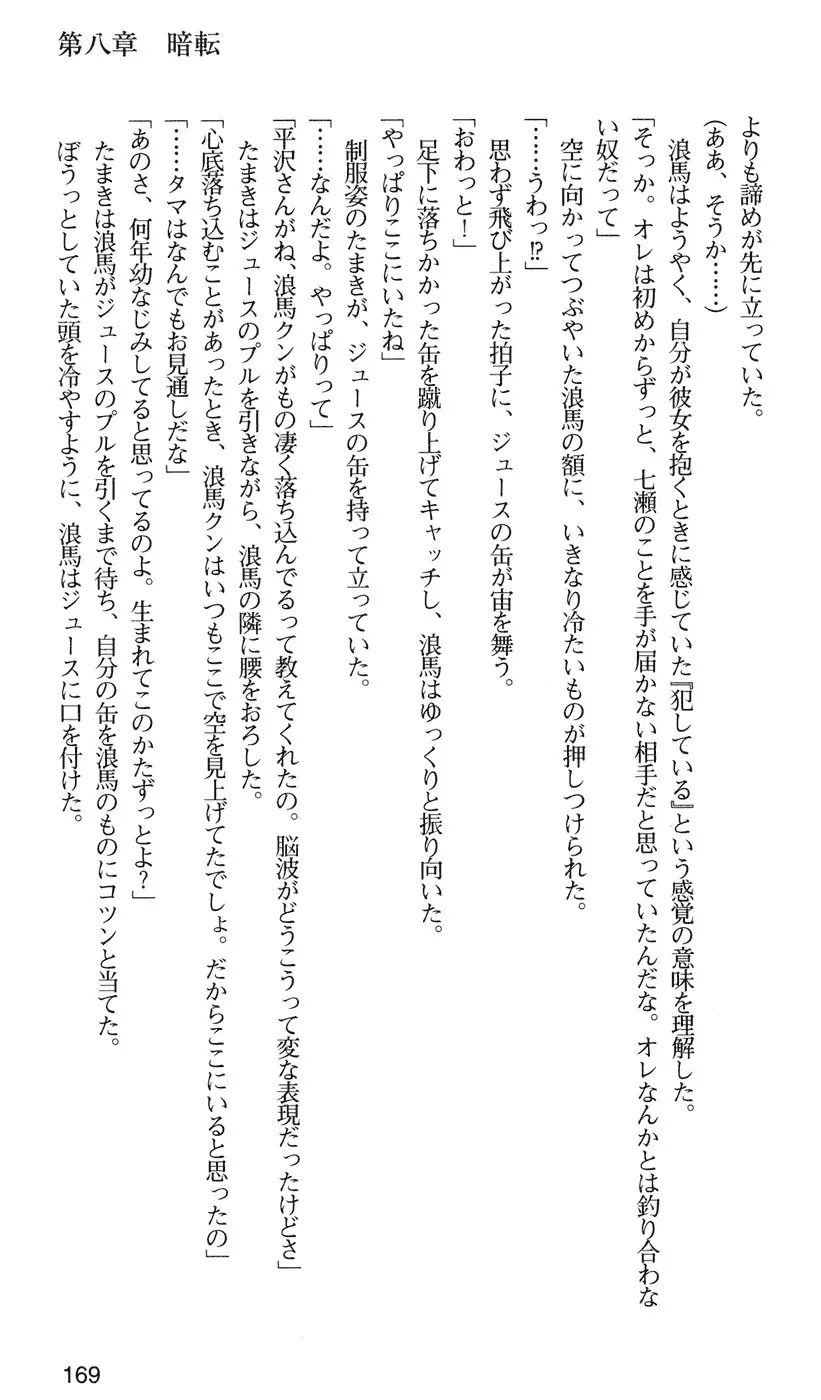 第八章　暗転
よりも諦めが先に立っていた。
（ああ、そうか……）
　浪馬はようやく、自分が彼女を抱くときに感じていた『犯している』という感覚の意味を理解した。
「そっか。オレは初めからずっと、七瀬のことを手が届かない相手だと思っていたんだな。オレなんかとは釣り合わな
い奴だって」
　空に向かってつぶやいた浪馬の額に、いきなり冷たいものが押しつけられた。
「……うわっ!?」
　思わず飛び上がった拍子に、ジュースの缶が宙を舞う。
「おわっと！」
　足下に落ちかかった缶を蹴り上げてキャッチし、浪馬はゆっくりと振り向いた。
「やっぱりここにいたね」
　制服姿のたまきが、ジュースの缶を持って立っていた。
「……なんだよ。やっぱりって」
「平沢さんがね、浪馬クンがもの凄く落ち込んでるって教えてくれたの。脳波がどうこうって変な表現だったけどさ」
　たまきはジュースのプルを引きながら、浪馬の隣に腰をおろした。
「心底落ち込むことがあったとき、浪馬クンはいつもここで空を見上げてたでしょ。だからここにいると思ったの」
「……タマはなんでもお見通しだな」
「あのさ、何年幼なじみしてると思ってるのよ。生まれてこのかたずっとよ？」
　たまきは浪馬がジュースのプルを引くまで待ち、自分の缶を浪馬のものにコツンと当てた。
　ぼうっとしていた頭を冷やすように、浪馬はジュースに口を付けた。
169